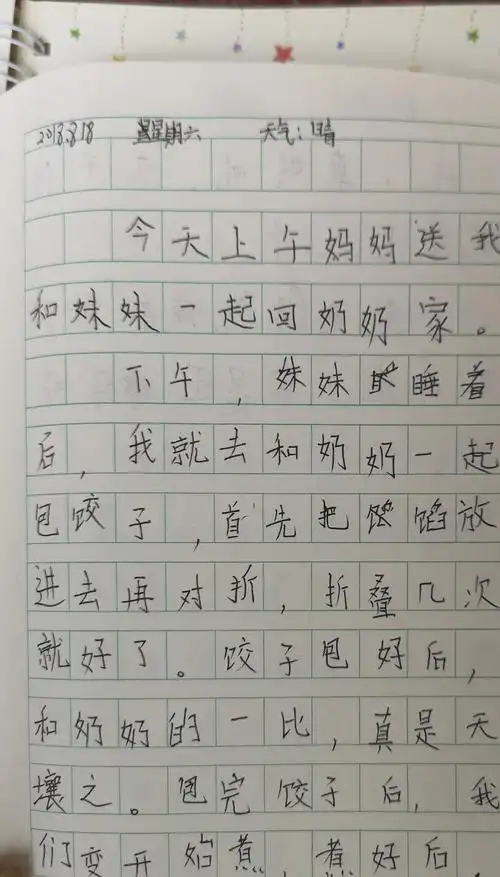 2018.8.18 星期六 天气:晴
今天上午妈妈送我
和妹妹一起回奶奶家。
下午,妹妹睡着
后,我就去和奶奶一起
包饺子,首先把馅放
进去再对折,折叠几次
就好了。饺子包好后,
和奶奶的一比,真是天
壤之。包完饺子后,我
们变开始煮,煮好后,